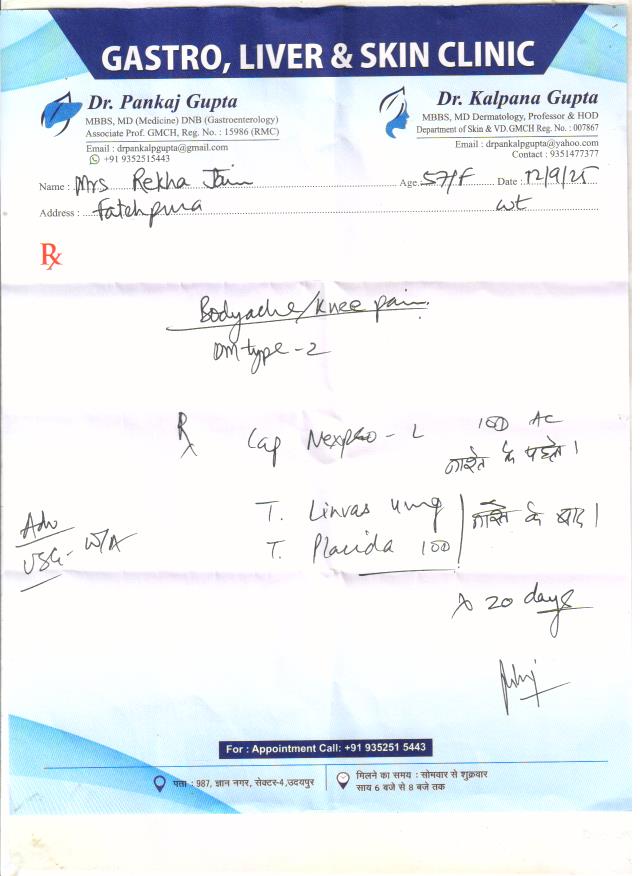 GASTRO, LIVER & SKIN CLINIC
Dr. Pankaj Gupta
MBBS, MD (Medicine) DNB (Gastroenterology)
Associate Prof. GMCH, Reg. No. : 15986 (RMC)
Email : drpankalpgupta@gmail.com
+91 9352515443
Dr. Kalpana Gupta
MBBS, MD Dermatology, Professor & HOD
Department of Skin & VD.GMCH Reg. No. : 007867
Email : drpankalpgupta@yahoo.com
Contact : 9351477377
Name : Mrs Rekha Jain Age. 57/F Date : 12/9/25
Address : Fatehpura wt
Rx
Bodyache/knee pain.
DM type-2
Rx Cap Nexpro - L 1OD AC
नाश्ते के पहले।
Adv
USG - W/A
T. Linvas
T. Placida 1OD
नाश्ते के बाद।
x 20 days
For : Appointment Call: +91 935251 5443
पता : 987, ज्ञान नगर, सेक्टर-4,उदयपुर
मिलने का समय : सोमवार से शुक्रवार
साय 6 बजे से 8 बजे तक